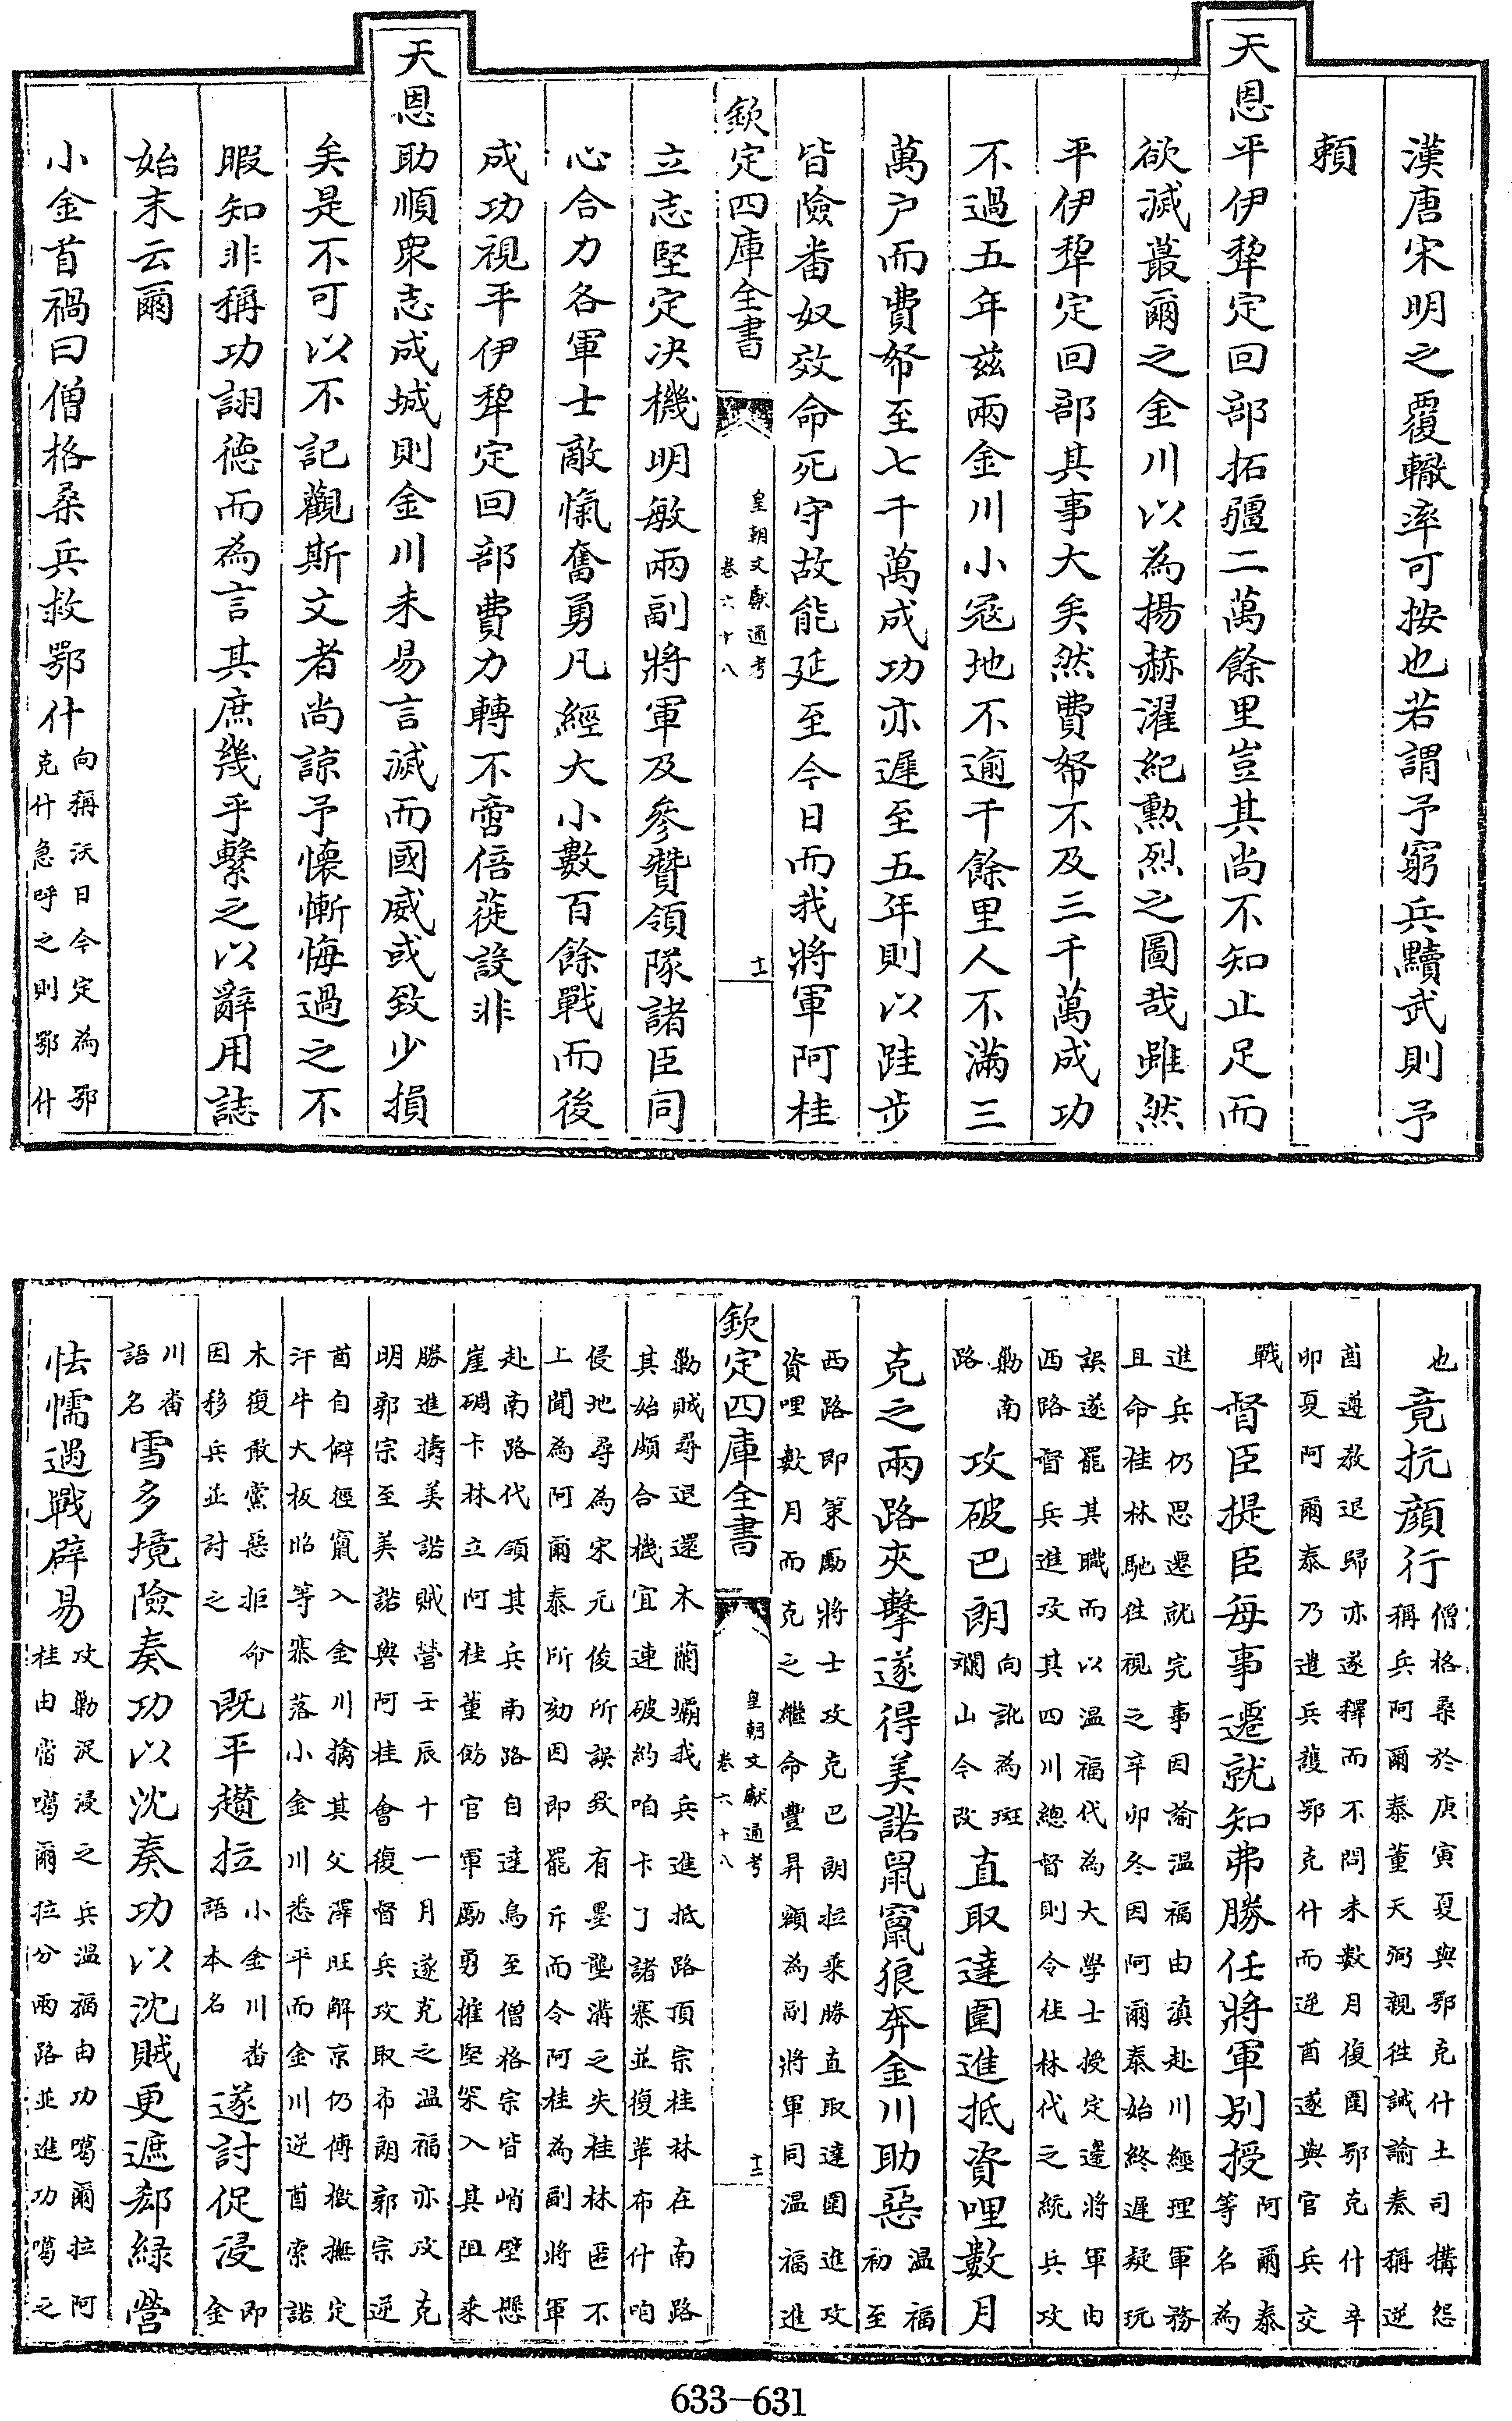 漢唐宋明之覆轍率可按也若謂予窮兵黷武則予
賴
天恩平伊犂定回部拓疆二萬餘里豈其尚不知止足而
欲滅蕞爾之金川以為揚赫濯紀勲烈之圖哉雖然
平伊犂定回部其事大矣然費帑不及三千萬成功
不過五年兹兩金川小冦地不逾千餘里人不滿三
萬户而費帑至七千萬成功亦遲至五年則以跬步
皆險畨奴效命死守故能延至今日而我將軍阿桂
欽定四庫全書
皇朝文獻通考
卷六十八
十一
立志堅定決機明敏兩副將軍及參贊領隊諸臣同
心合力各軍士敵愾奮勇凡經大小數百餘戰而後
成功視平伊犂定回部費力轉不啻倍蓰設非
天恩助順衆志成城則金川未易言滅而國威或致少損
矣是不可以不記觀斯文者尚諒予懷慚悔過之不
暇知非稱功詡徳而為言其庶幾乎繫之以辭用誌
始末云爾
小金首禍曰僧格桑兵救鄂什向稱沃日今定為鄂
克什急呼之則鄂什
也竟抗顔行僧格桑於庚寅夏與鄂克什土司搆怨
稱兵阿爾泰董天弼親往誡諭奏稱逆
酋遵教退歸亦遂釋而不問未數月復圍鄂克什辛
卯夏阿爾泰乃遣兵護鄂克什而逆酋遂與官兵交
戰督臣提臣每事遷就知弗勝任將軍别授阿爾泰
等名為
進兵仍思遷就完事因諭温福由滇赴川經理軍務
且命桂林馳往視之辛卯冬因阿爾泰始終遲疑玩
誤遂罷其職而以温福代為大學士授定邊將軍由
西路督兵進攻其四川總督則令桂林代之統兵攻
勦南
路攻破巴朗向訛為斑
斕山今改直取達圍進抵資哩數月
克之兩路夾擊遂得美諾鼠竄狼奔金川助惡温福
初至
西路即策勵將士攻克巴朗拉乘勝直取達圍進攻
資哩數月而克之繼命豐昇額為副將軍同温福進
欽定四庫全書
皇朝文獻通考
卷六十八
十二
勦賊尋退還木蘭壩我兵進抵路頂宗桂林在南路
其始頗合機宜連破約咱卡了諸寨並復革布什咱
侵地尋為宋元俊所誤致有墨壟溝之失桂林匿不
上聞為阿爾泰所劾因即罷斥而令阿桂為副將軍
赴南路代領其兵南路自達烏至僧格宗皆峭壁懸
崖碉卡林立阿桂董飭官軍勵勇摧堅罙入其阻乘
勝進擣美諾賊營壬辰十一月遂克之温福亦攻克
明郭宗至美諾與阿桂會復督兵攻取布朗郭宗逆
酋自僻徑竄入金川擒其父澤旺解京仍傳檄撫定
汗牛大板昭等寨落小金川悉平而金川逆酋索諾
木復敢黨惡拒命
因移兵並討之既平趲拉小金川畨
語本名遂討促浸即金
川畨
語名雪多境險奏功以沈奏功以沈賊更遮郄緑營
怯懦遇戰辟易攻勦促浸之兵温福由功噶爾拉阿
桂由當噶爾拉分兩路並進功噶之
633-631